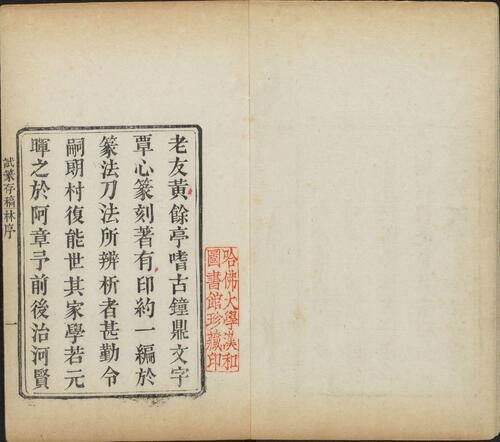 哈佛大學漢和
圖書館珍藏印
老友黃餘亭嗜古鐘鼎文字
覃心篆刻著有印約一編於
篆法刀法所辨析者甚勤令
嗣明村復能世其家學若元
暉之於阿章予前後治河賢
試篆存稿林序
一